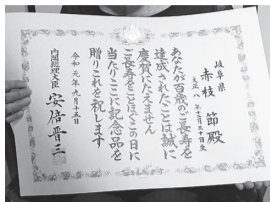 岐阜県
赤枝節殿
大正八年三月三十日生
あなたが百歳のご長寿を
達成されたことは誠に
慶賀にたえません
ご長寿をことほぐこの日に
当たりここに記念品を
贈りこれを祝します
令和元年九月十五日
内閣総理大臣 安倍晋三